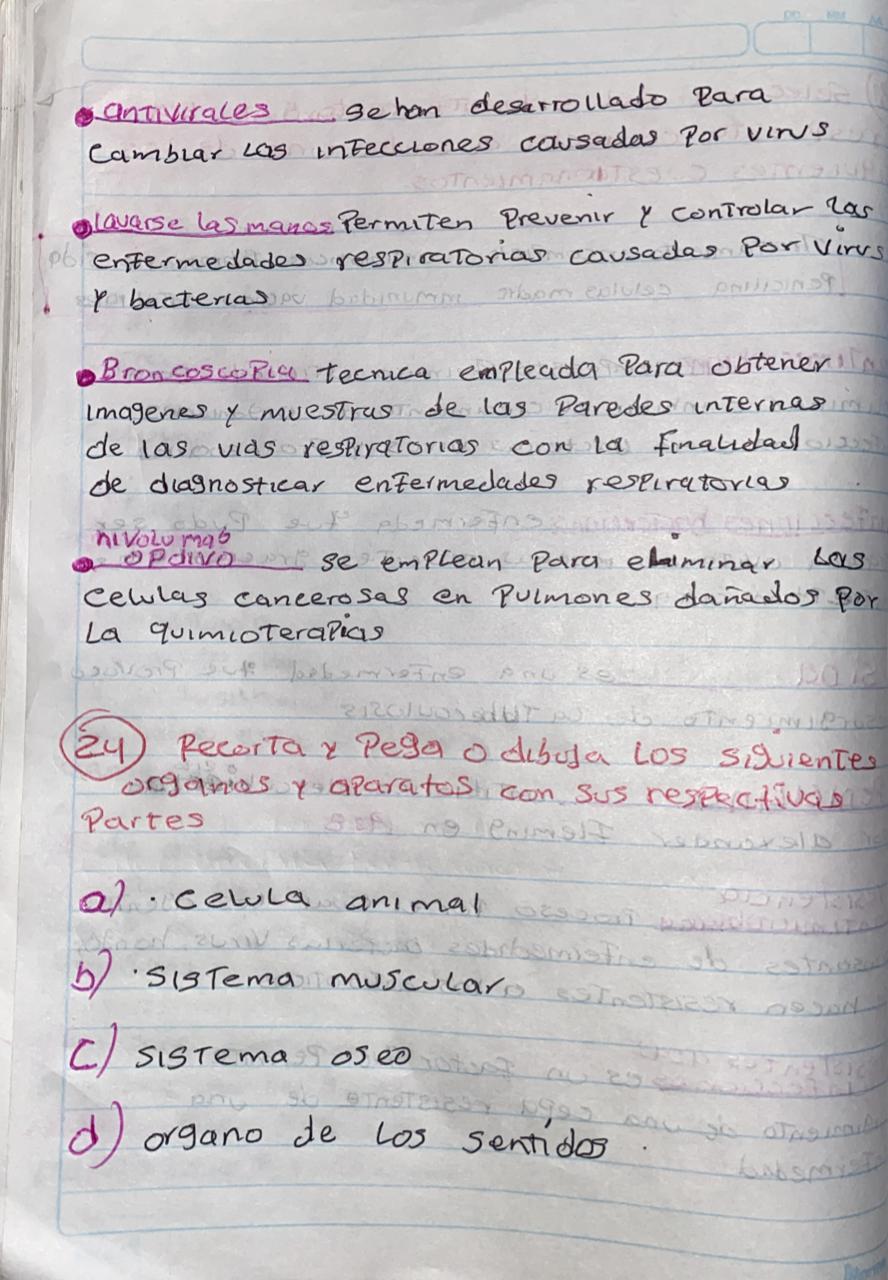 antivirales se han desarrollado Para
Cambiar Las infecciones causadas Por virus
lavarse las manos Permiten Prevenir y controlar las
enfermedades respiratorias causadas Por Virus
y bacterias
Broncoscopia tecnica empleada Para obtener
imagenes y muestras de las Paredes internas
de las vias respiratorias con la finalidad
de diagnosticar enfermedades respiratorias
nivolumab
opdivo se emplean para eliminar Las
celulas cancerosas en Pulmones dañados por
La quimioterapias
24 Recorta y Pega o dibuja Los siguientes
organos y aparatos con sus respectivas
Partes
a) . celula animal
b) . sistema muscular
c) sistema oseo
d) organo de los sentidos .